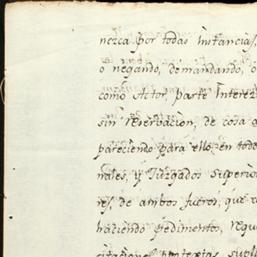 nezca por todas instancias,
o negando, demandando, o
como Actor, parte Interez
sin reservacion, de cosa a
pareciendo para ello en todo
nales, y Juzgados Superio
res, de ambos fueros, que
haciendo pedimentos, requi
citaciones, protextas, supli